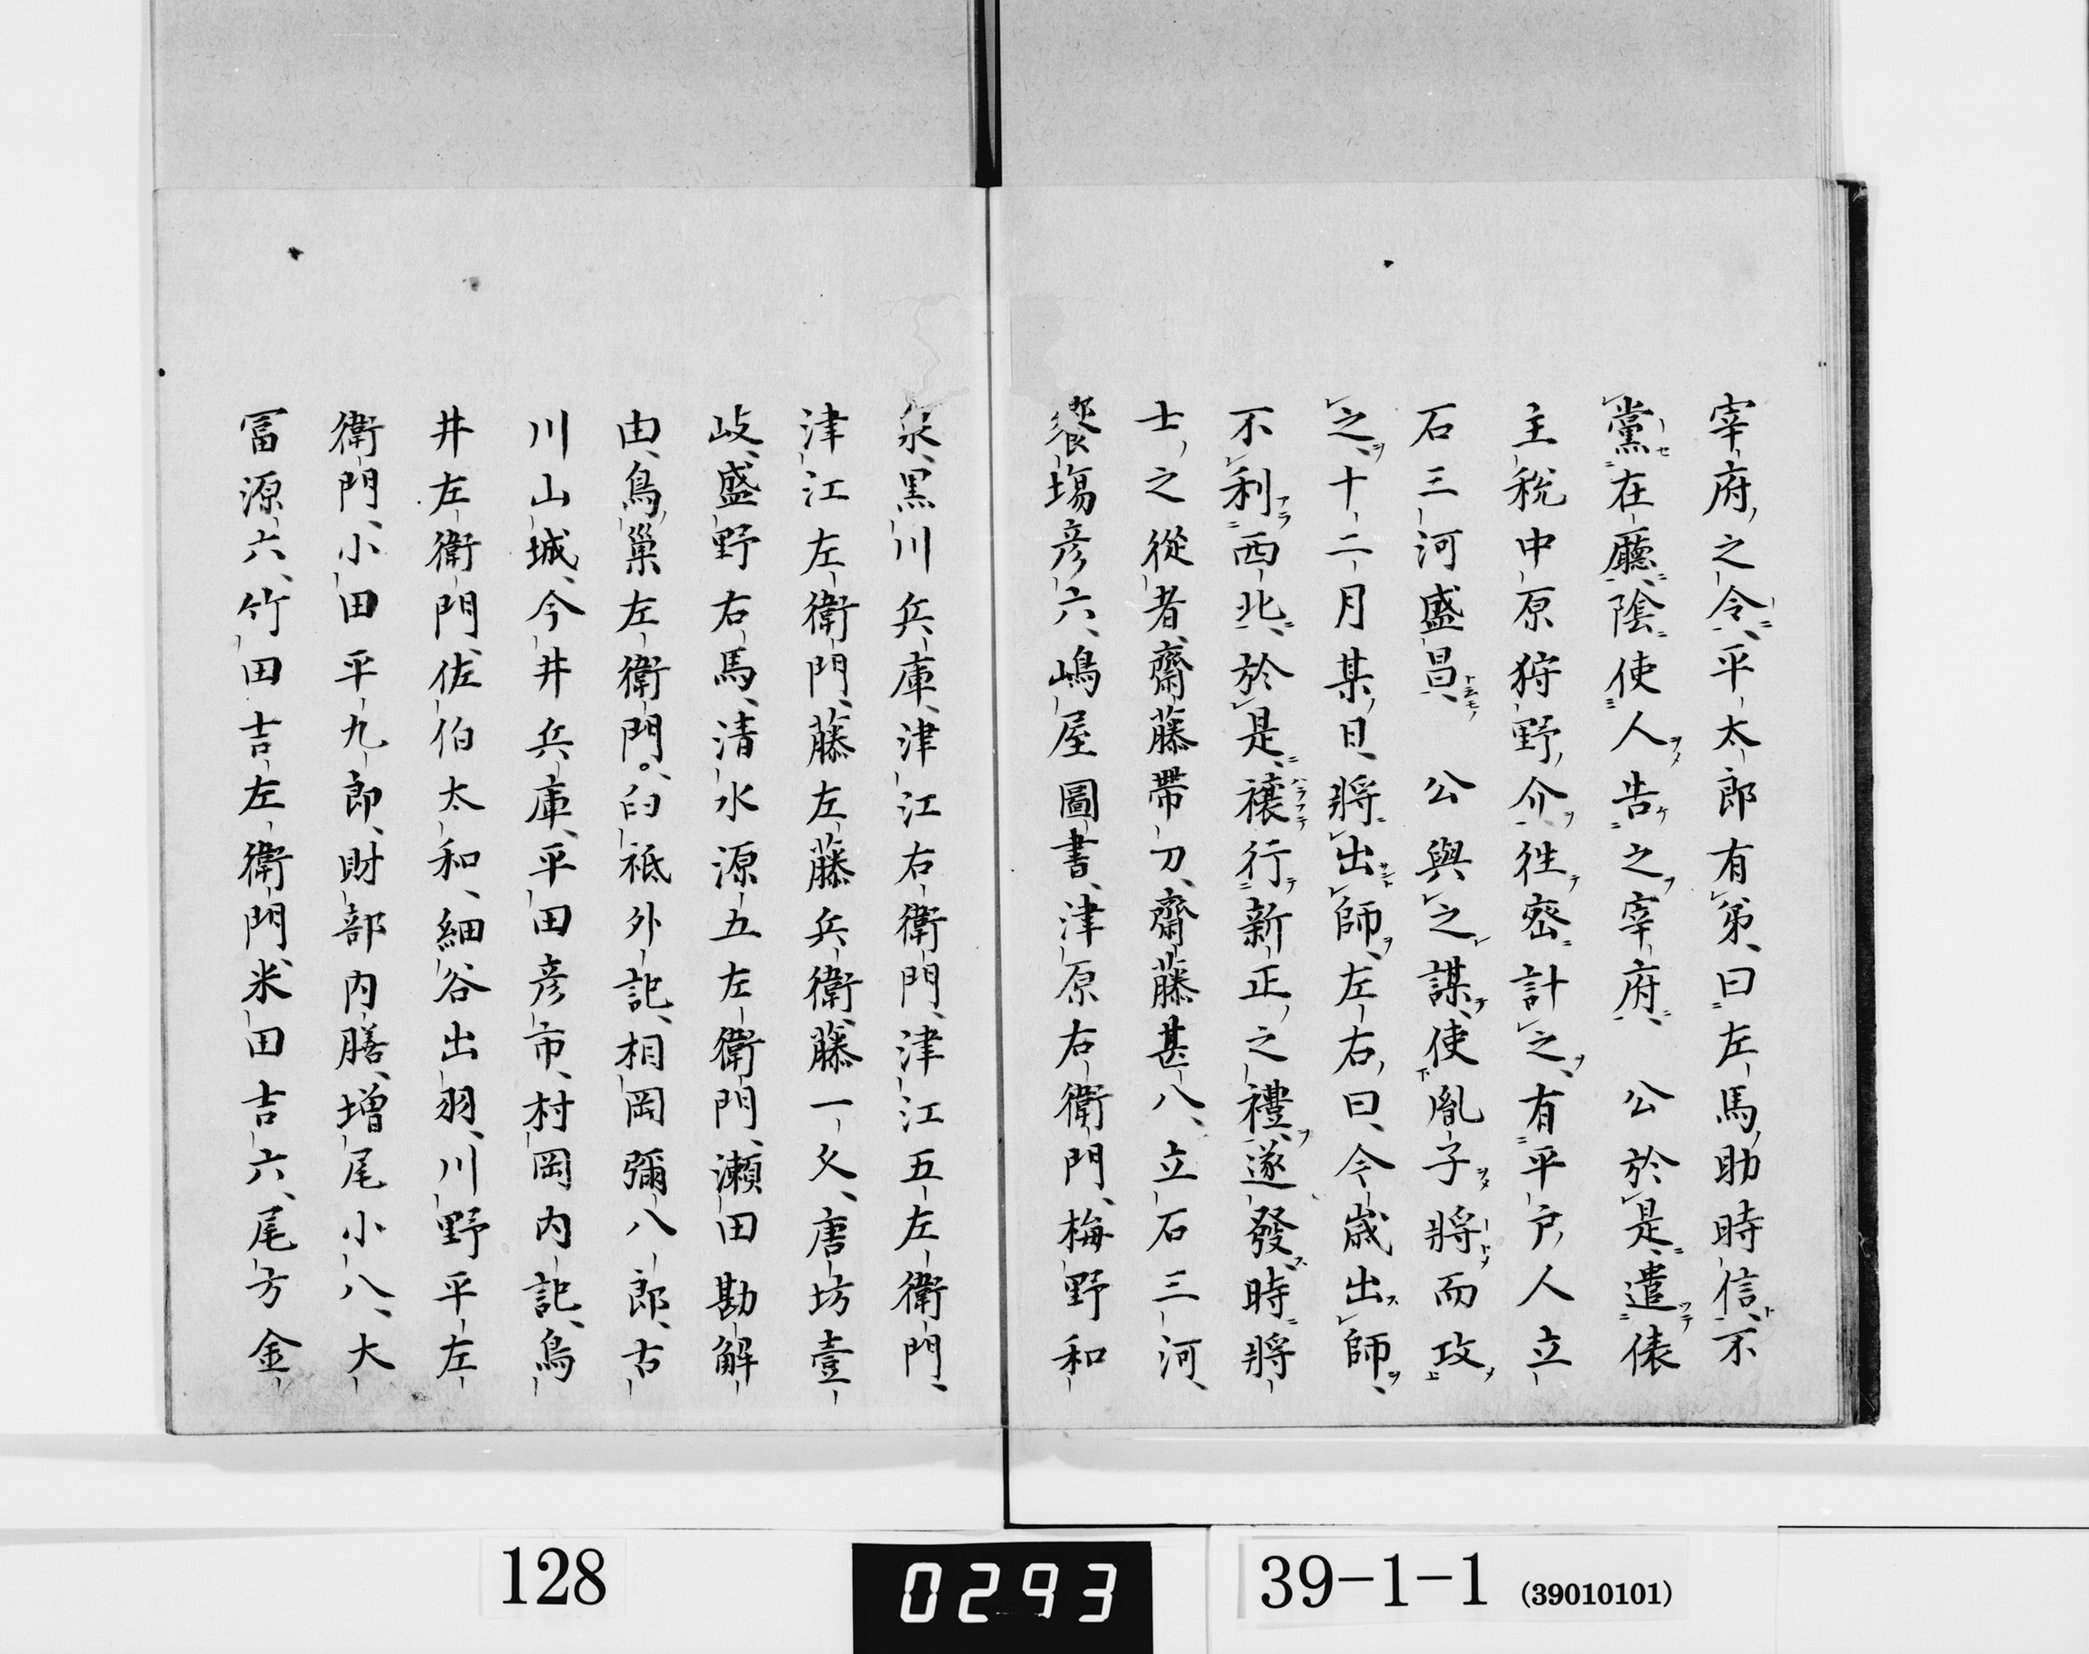 宰府之令、平太郎有弟、曰左馬助時信、不
黨在廳、陰使人告之宰府、　公於是、遣俵
主税中原狩野介徃密計之、有平戸人立
石三河盛昌、　公與之謀、使胤子將而攻
之、十二月某日、將出師、左右曰、今歳出師、
不利西北、於是、禳行新正之禮、遂發、時將
士之從者、齋藤帶刀、齋藤甚八、立石三河、
饗塲彦六、嶋屋圖書、津原右衛門、梅野和
泉、黒川兵庫、津江右衛門、津江五左衛門、
津江左衛門、藤左藤兵衛、藤一久、唐坊壹
岐、盛野右馬、清水源五左衛門、瀬田勘解
由、鳥巢左衛門、臼祗外記、相岡彌八郎、古
川山城、今井兵庫、平田彦市、村岡内記、烏
井左衛門、佐伯太和、細谷出羽、川野平左
衛門、小田平九郎、財部内膳、増尾小八、大
冨源六、竹田吉左衛門、米田吉六、尾方金
128
0293
39-1-1 (39010101)